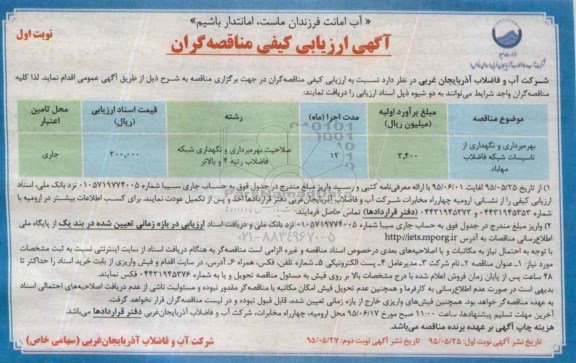 « آب امانت فرزندان ماست، امانتدار باشیم»
نوبت اول
آگهی ارزیابی کیفی مناقصه‌گران
شرکت آب و فاضلاب آذربایجان غربی در نظر دارد نسبت به ارزیابی کیفی مناقصه‌گران در جهت برگزاری مناقصه به شرح ذیل از طریق آگهی عمومی اقدام نماید. لذا کلیه
مناقصه‌گران واجد شرایط می‌توانند به دو شیوه ذیل اسناد ارزیابی را دریافت نمایند:
موضوع مناقصه
مبلغ برآورد اولیه (میلیون ریال)
مدت اجرا (ماه)
رشته
قیمت اسناد ارزیابی (ریال)
محل تامین اعتبار
بهره‌برداری و نگهداری از تاسیسات شبکه فاضلاب مهاباد
۳,۴۰۰
۱۲
صلاحیت بهره‌برداری و نگهداری شبکه فاضلاب رتبه ۴ و بالاتر
۳۰۰,۰۰۰
جاری
۱) از تاریخ ۹۵/۰۵/۲۵ لغایت ۹۵/۰۶/۰۱ با ارائه معرفی‌نامه کتبی و رسید واریز مبلغ مندرج در جدول فوق به حساب جاری سیبا شماره ۰۱۰۵۷۱۹۷۷۴۰۰۵ نزد بانک ملی، اسناد
ارزیابی کیفی را از نشانی: ارومیه چهارراه مخابرات شرکت آب و فاضلاب آذربایجان‌غربی دفتر قراردادها اخذ و پس از تکمیل عودت نمایند. برای کسب اطلاعات بیشتر در ارومیه با
شماره ۰۴۴۳۱۹۴۵۳۵۳ و ۰۴۴۳۱۹۴۵۳۷۳ (دفتر قراردادها) تماس حاصل فرمایند.
۲) واریز مبلغ مندرج در جدول فوق به حساب جاری سیبا شماره ۰۱۰۵۷۱۹۷۷۴۰۰۵ نزد بانک ملی و دریافت اسناد ارزیابی در بازه زمانی تعیین شده در بند یک از پایگاه ملی
اطلاع‌رسانی مناقصات به آدرس http://iets.mporg.ir
با توجه به احتمال نیاز به مکاتبات و یا اصلاحیه‌های بعدی درخصوص اسناد مناقصه و غیره الزامی است مناقصه‌گر به هنگام دریافت اسناد از سایت اینترنتی نسبت به ثبت مشخصات
مورد نیاز، ۱ـ عنوان مناقصه ۲ـ نام شرکت ۳ـ مدیرعامل ۴ـ پست الکترونیکی ۵ـ شماره تلفن، فکس، همراه ۶ـ آدرس، در سایت اقدام و فیش واریزی از بابت خرید اسناد را حداکثر تا
۴۸ ساعت پس از پایان زمان فروش اعلام شده با درج مشخصات بالا بر روی فیش به مسئول مناقصه تحویل و یا به شماره ۰۴۴۳۱۹۴۵۳۷۶ فکس نمایند.
بدیهی است در صورت عدم اطلاع‌رسانی به کارفرما و همچنین عدم تحویل فیش امکان مکاتبه با مناقصه‌گر مقدور نبوده و مسئولیت ناشی از عدم دریافت اصلاحیه‌های احتمالی اسناد
به عهده مناقصه‌گر خواهد بود. همچنین فیش‌های واریزی خارج از بازه زمانی تعیین شده، قابل قبول نبوده و در لیست مناقصه‌گران قرار نخواهد گرفت.
آخرین مهلت تسلیم پیشنهادها، ساعت ۱۱:۰۰ صبح مورخ ۹۵/۰۶/۱۷ محل ارومیه، چهارراه مخابرات، شرکت آب و فاضلاب آذربایجان‌غربی دفتر قراردادها می‌باشد.
هزینه چاپ آگهی بر عهده برنده مناقصه می‌باشد.
تاریخ نشر آگهی نوبت اول: ۹۵/۰۵/۲۵
تاریخ نشر آگهی نوبت دوم: ۹۵/۰۵/۲۷
شرکت آب و فاضلاب آذربایجان‌غربی (سهامی خاص)